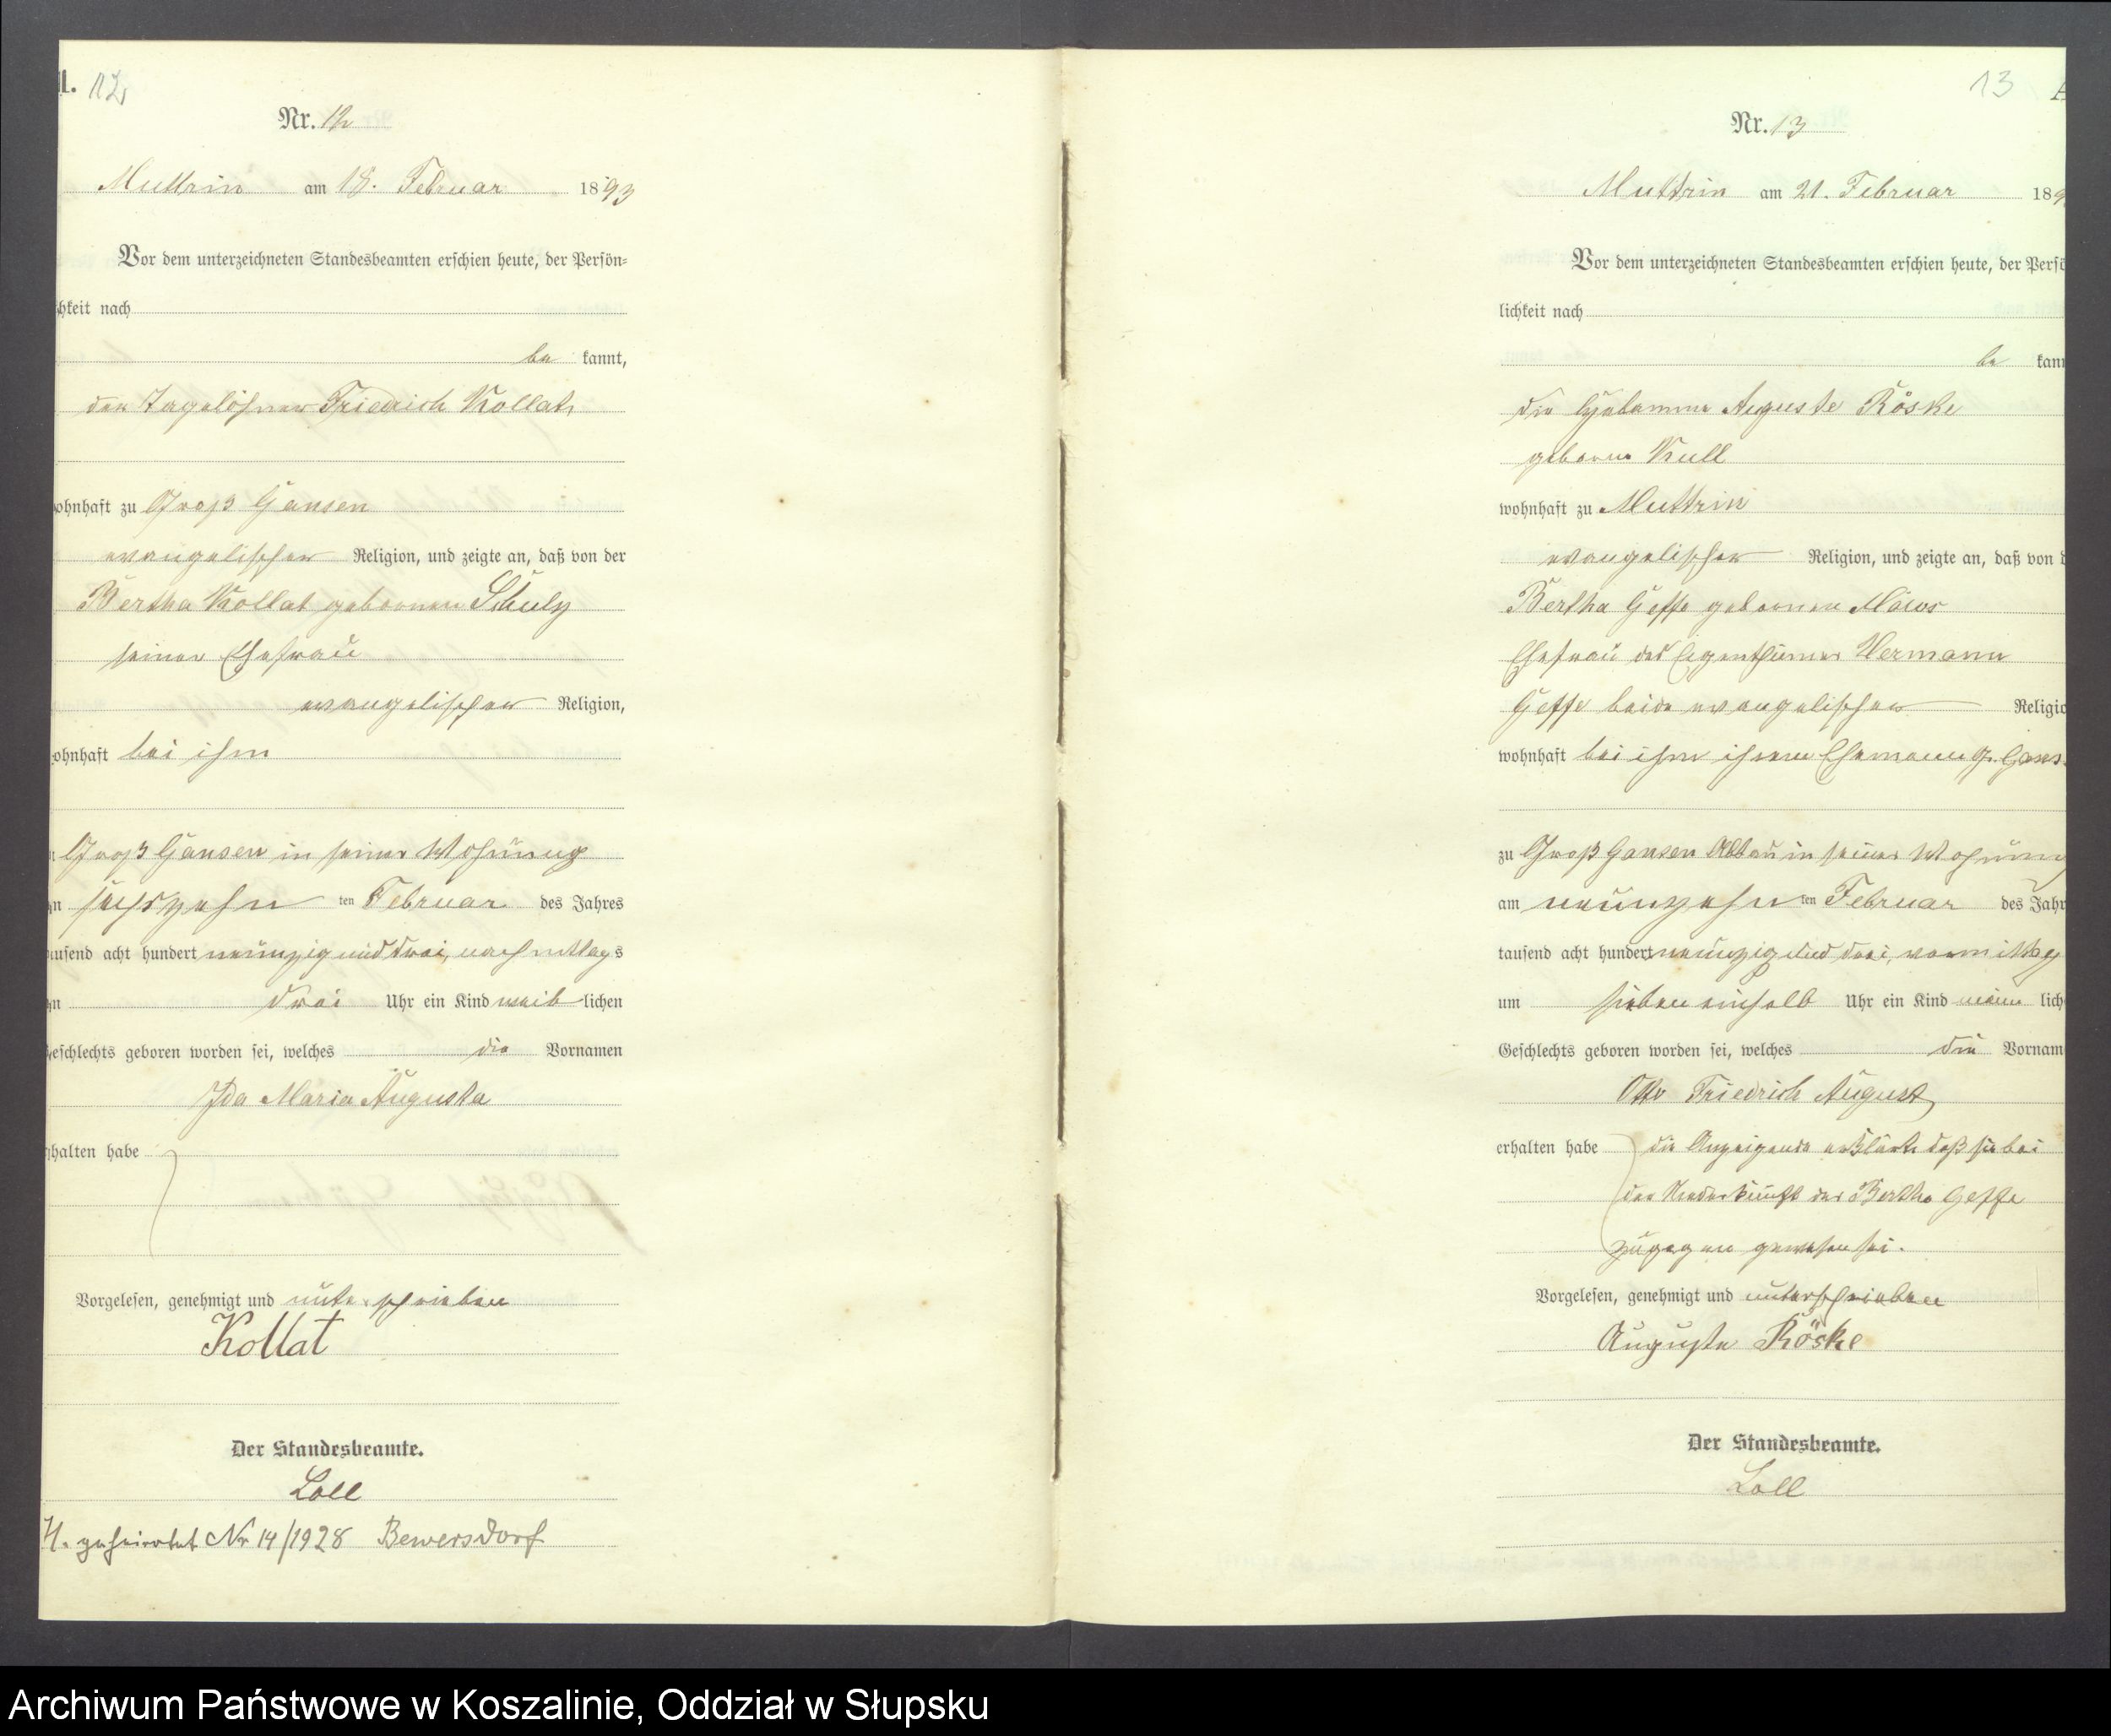 12
Nr. 12
Muttrin am 18. Februar 1893
Vor dem unterzeichneten Standesbeamten erschien heute, der Persön=
hkeit nach
be kannt,
der Tagelöhner Friedrich Kollat,
ohnhaft zu Groß Gansen
evangelischer Religion, und zeigte an, daß von der
Bertha Kollat geborenen Schulz
seiner Ehefrau
evangelischer Religion,
ohnhaft bei ihm
Groß Gansen in seiner Wohnung
sechszehn ten Februar des Jahres
usend acht hundert neunzig und drei, nachmittags
drei Uhr ein Kind weib lichen
eschlechts geboren worden sei, welches die Vornamen
Ida Maria Augusta
halten habe
Vorgelesen, genehmigt und unterschrieben
Kollat
Der Standesbeamte.
Loll
H. geheiratet Nr 14/1928 Bewersdorf
13
Nr. 13
Muttrin am 21. Februar 189
Vor dem unterzeichneten Standesbeamten erschien heute, der Persö
lichkeit nach
be kann
die Hebamme Auguste Röske
geborne Kull
wohnhaft zu Muttrin
evangelischer Religion, und zeigte an, daß von d
Bertha Geffe geborenen Mews
Ehefrau des Eigenthümer Hermann
Geffe beide evangelischer Religio
wohnhaft bei ihm ihrem Ehemann Gr. Gans.
zu Groß Gansen Abbau in seiner Wohnung
am neunzehn ten Februar des Jahr
tausend acht hundert neunzig und drei, vormittag
um sieben einhalb Uhr ein Kind männ lich
Geschlechts geboren worden sei, welches die Vornam
Otto Friedrich August
erhalten habe die Anzeigende erklärte daß sie bei
der Niederkunft der Bertha Geffe
zugegen gewesen sei.
Vorgelesen, genehmigt und unterschrieben
Auguste Röske
Der Standesbeamte.
Loll
Archiwum Państwowe w Koszalinie, Oddział w Słupsku